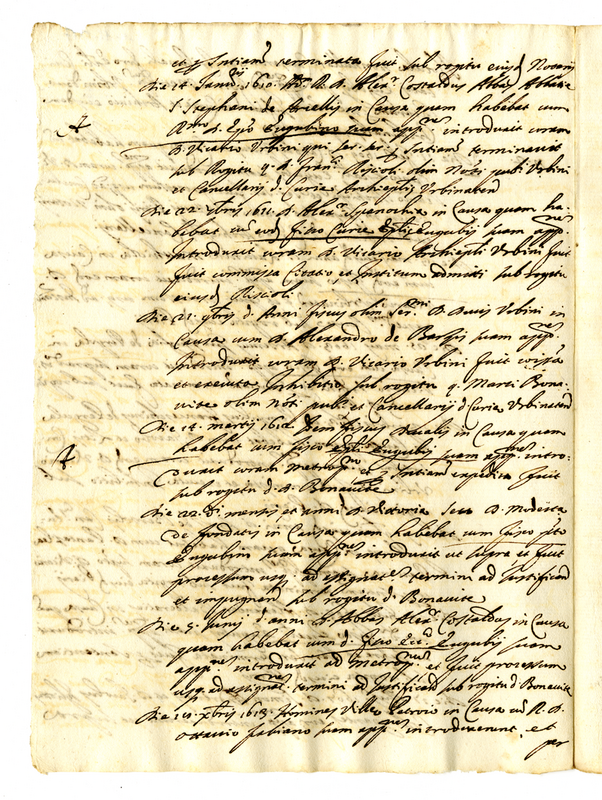 et p Sntiam terminata fuit sub rogitu eiusd Notarij
Die et Januarij 1610. R. D. Alexr Costaldus Abbas Abbatie
S. Stephani de in Causa quam habebat cum
Rmo D. Epo Eugubino suam appnem introduxit coram
D. Vicario Urbini qui Sntiam terminavit
sub Rogitu q. D. Franci Riscioli olim Noti publi Urbini
et Cancellarij d. Curie Archieplis Urbinaten
Die 22. xbris 1611. D. Alexr Spanochia in Causa quam ha-
bebat cu eod fisco Curie Eplis Eugubij suam appnem
Introduxit coram D. Vicario Archiepli Urbini fuit
fuit commissa Citatio, et Institum admitti sub rogitu
eiusd Riscioli
Die 21. 9bris d. Anni fiscus olim Sermi D. Ducis Urbini in
Causa cum D. Alexandro de suam appnem
Introduxit coram D. Vicario Urbini fuit
et Inhibitio sub rogitu q. Marci Bona-
vite olim Noti publi et Cancellarij d Curie Urbinaten
Die 14. martij 1612. Idem fiscus Ducalis in Causa quam
habebat cum fisco Epli Eugubij suam appnem intro-
duxit coram Metrono et p Sntiam expedita fuit
sub rogitu d. D. Bonavite
Die 22. Di mensis et anni D. Victoria seu D. Modesta
de fondatis in Causa quam habebat cum fisco
Eugubin suam appnem introduxit ut supra et fuit
processum usq. ad assignatnem termini ad Justificand
et impugnand sub rogitu d. Bonavite
Die 5. Junij d. anni D. Abbas Alexr Costaldus in Causa
quam habebat cum d. fisco Ecc. Eugubij suam
appnem introduxit ad Metronum et fuit processum
usq. ad assignnem termini ad Justificad sub rogitu d. Bonavite
Die 14. xbris 1613. Homines Ville Petroio in Causa cu R. D.
Ottavio fabiano suam appnem introduxerunt, et
per